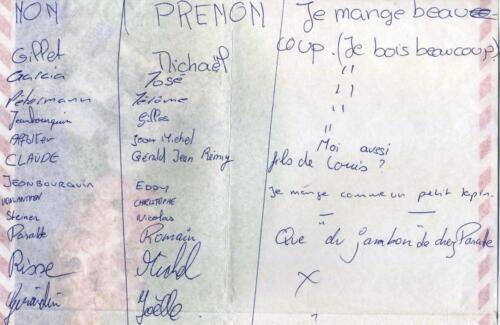 NON PRENON Je mange beau
coup. (Je bois beaucoup)
Gillet Michaël "
Garcia José "
Petermann Jérôme "
Jeanbourquin Gilles "
Jean Michel Moi aussi
CLAUDE Gérald Jean Rémy fils de Louis ?
JEANBOURQUIN EDDY Je mange comme un petit lapin.
CHRISTOPHE — —
Steiner Nicolas "
Paratte Romain Que du jambon de chez Paratte
Risse Michel X
Girardin Joëlle ?